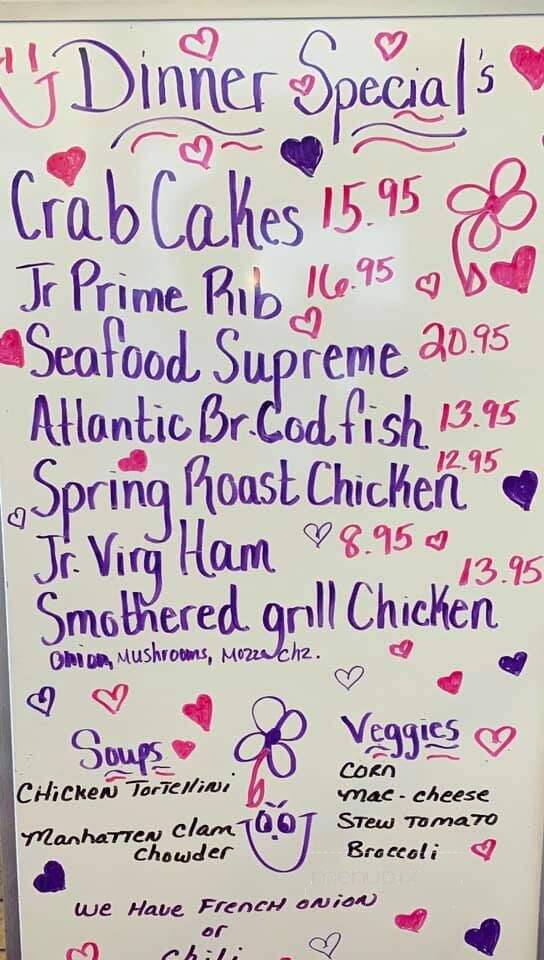 Dinner Special's
Crab Cakes 15.95
Jr Prime Rib 16.95
Seafood Supreme 20.95
Atlantic Br. Cod fish 13.95
Spring Roast Chicken 12.95
Jr. Virg Ham 8.95
Smothered grill Chicken 13.95
Onion, Mushrooms, Mozza Chz.
Soups
Chicken Tortellini
Manhatten Clam
Chowder
Veggies
Corn
Mac-cheese
Stew Tomato
Broccoli
We Have French Onion
or
Chili